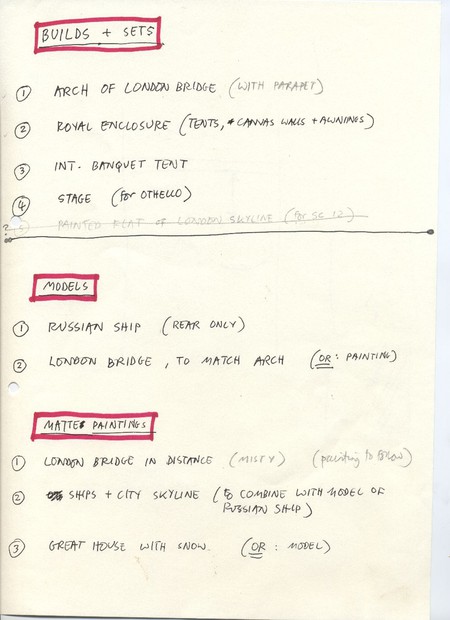 BUILDS + SETS
① ARCH OF LONDON BRIDGE (WITH PARAPET)
② ROYAL ENCLOSURE (TENTS, CANVAS WALLS + AWNINGS)
③ INT. BANQUET TENT
④ STAGE (FOR OTHELLO)
? ⑤ PAINTED FLAT OF LONDON SKYLINE (for SC 12)
MODELS
① RUSSIAN SHIP (REAR ONLY)
② LONDON BRIDGE, TO MATCH ARCH (OR: PAINTING)
MATTE PAINTINGS
① LONDON BRIDGE IN DISTANCE (MISTY) (painting to follow)
② SHIPS + CITY SKYLINE (to COMBINE WITH MODEL OF
RUSSIAN SHIP)
③ GREAT HOUSE WITH SNOW. (OR: MODEL)